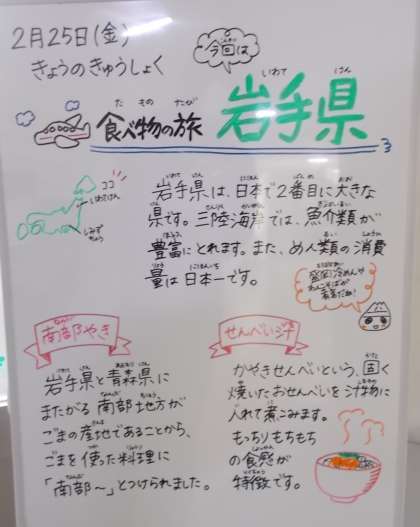 2月25日(金)
きょうのきゅうしょく
今回は
食べ物の旅
岩手県
ココ
いわてけん
しみず
ちゅう
岩手県は、日本で2番目に大きな
県です。三陸海岸では、魚介類が
豊富にとれます。また、めん類の消費
量は日本一です。
盛岡冷めんや
わんこそばが
有名だね!
南部やき
岩手県と青森県に
またがる南部地方が
ごまの産地であることから、
ごまを使った料理に
「南部〜」とつけられました。
せんべい汁
かやきせんべいという、固く
焼いたおせんべいを汁物に
入れて煮こみます。
もっちりもちもち
の食感が
特徴です。